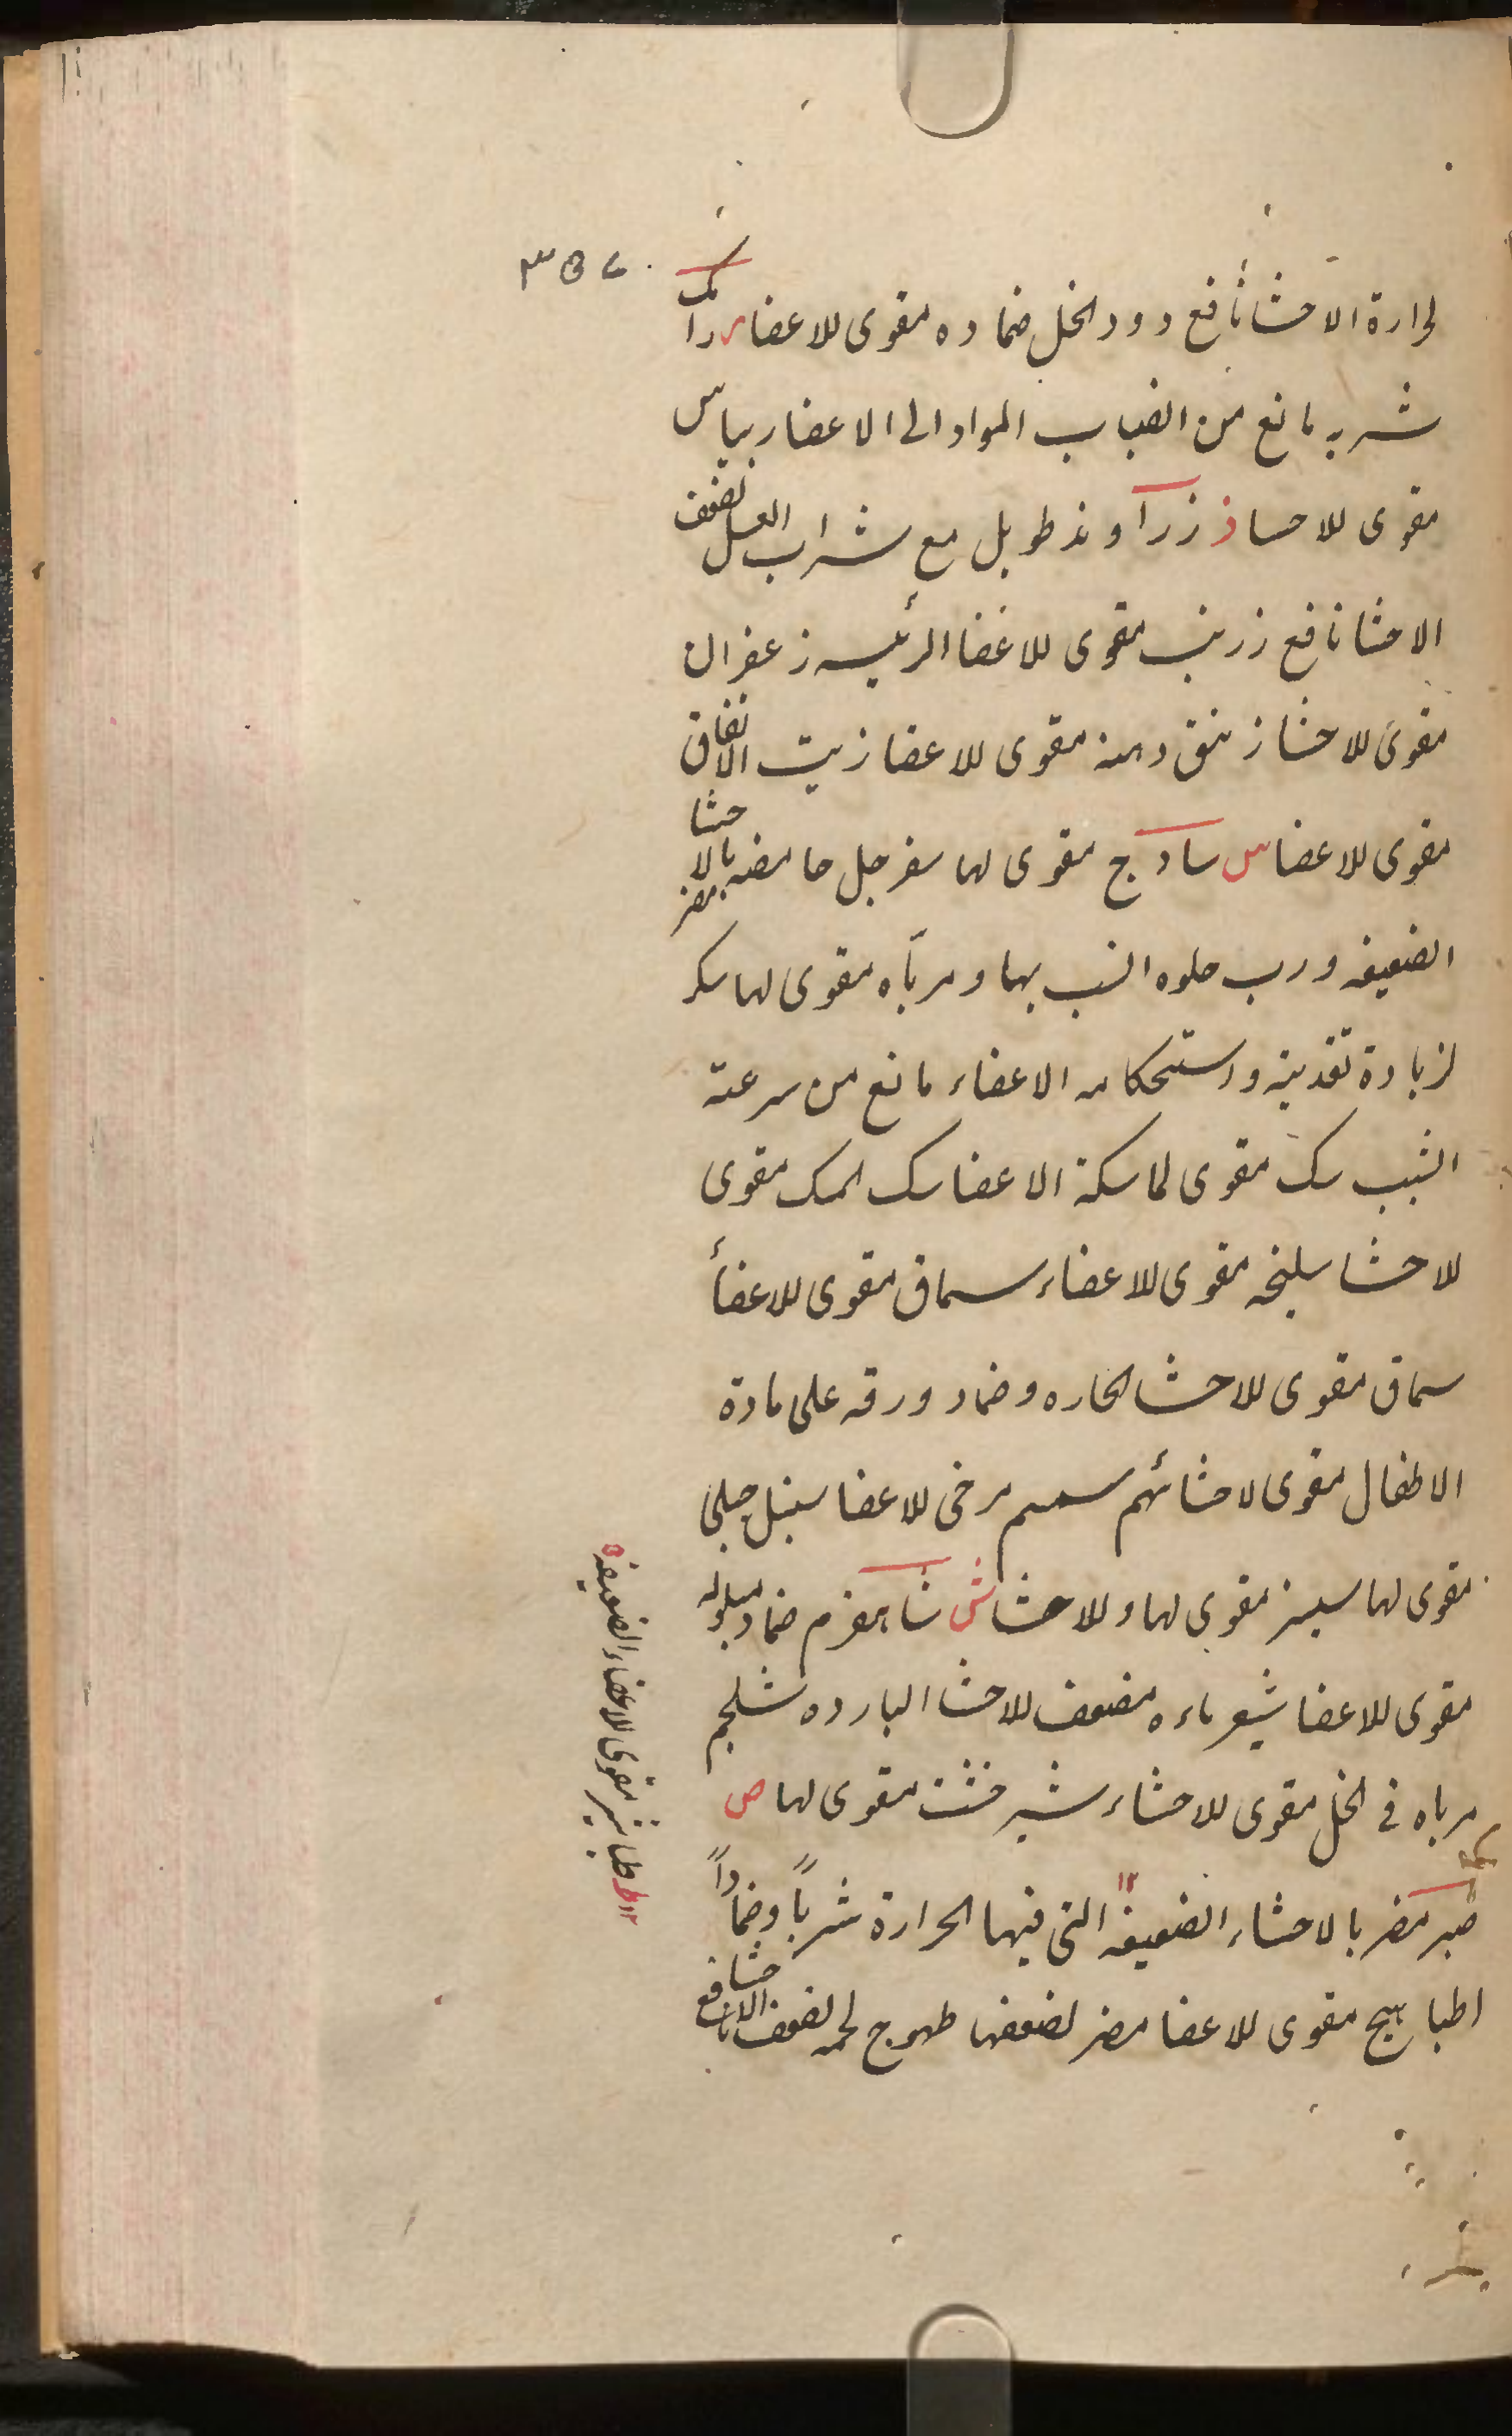 ٣٥٧
لحرارة الاحشا نافع دود الخل ضماده مقوى للاعضا ر رامك
شربه مانع من انصباب المواد الى الاعضا ريباس
مقوى للاحسا ز زراوند طويل مع شراب العسل لضعف
الاحشا نافع زرنب مقوى للاعضا الرئيسه زعفران
مقوى للاحشا زنبق دهنه مقوى للاعضا زيت الانفاق
مقوى للاعضا س سادج مقوى لها سفرجل حامضه بالاحشا مضر
الضعيفه ورب حلوه انسب بها ومرباه مقوى لها سكر
لزيادة تغذيته واستحكامه الاعضاء مانع من سرعة
الشيب سك مقوى لماسكة الاعضا سك المسك مقوى
للاحشا سليخه مقوى للاعضاء سماق مقوى للاعضأ
سماق مقوى للاحشا الحاره وضماد ورقه على مادة
الاطفال مقوى لاحشائهم سمسم مرخى للاعضا سنبل جبلى
مقوى لها سيسنبر مقوى لها وللاحشا ش شاهسفرم ضماد مبلوله
مقوى للاعضا شعير ماءه مضعف للاحشا البارده شلجم
مرباه فى الخل مقوى للاحشاء شيرخشت مقوى لها ص
صبر مضر بالاحشاء الضعيفة ١٢ التى فيها الحرارة شرباً وضماداً
اطبا هيج مقوى للاعضا مضر لضعفها طهوج لحمه لضعف الاحشا نافع
١٢ ط طباشير مقوى للاعضاء الضعيفه ٥